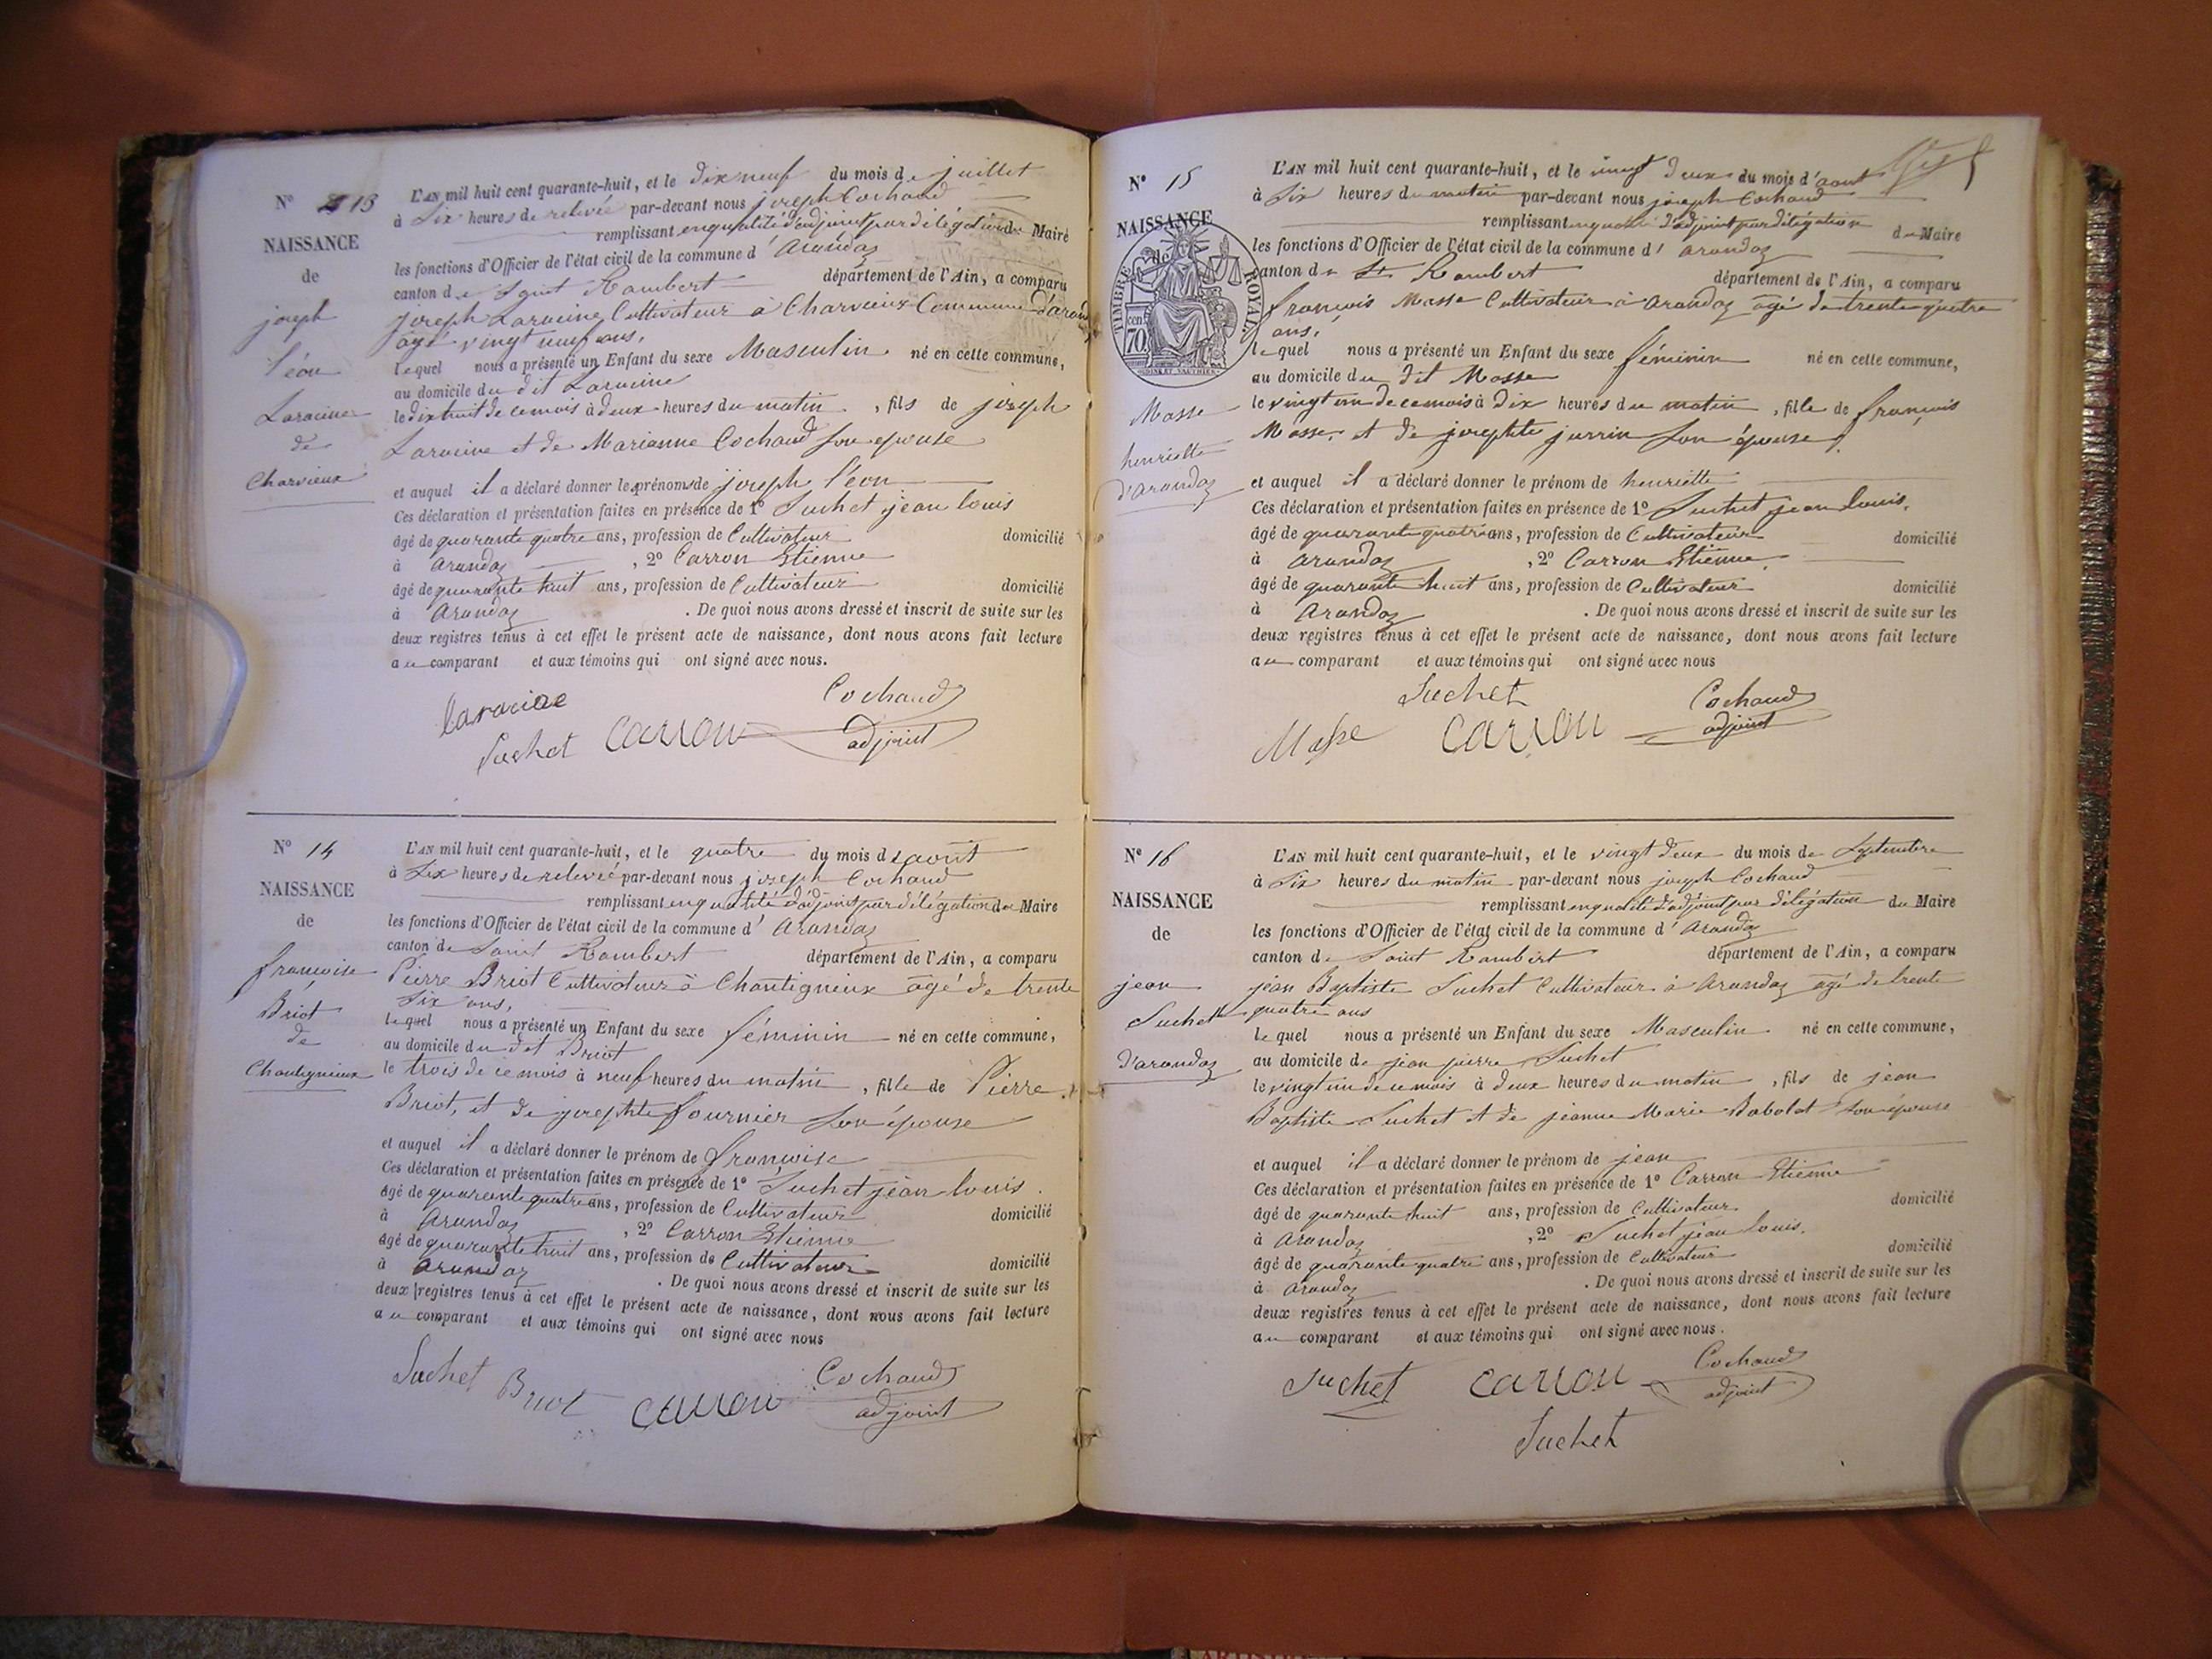 N° 13
NAISSANCE
de
joseph
léon
Laracine
de
Charvieux
L'AN mil huit cent quarante-huit, et le dix neuf du mois de juillet
à Six heures de relevée par-devant nous joseph Cochaud
remplissant en qualité d'adjoint par délégation du Maire
les fonctions d'Officier de l'état civil de la commune d'Arandaz
canton de Saint Rambert département de l'Ain, a comparu
joseph Laracine Cultivateur à Charvieux Commune d'arandaz
âgé vingt neuf ans,
lequel nous a présenté un Enfant du sexe Masculin né en cette commune,
au domicile du dit Laracine
le dix huit de ce mois à deux heures du matin, fils de joseph
Laracine et de Marianne Cochaud son epouse
et auquel il a déclaré donner les prénoms de joseph léon
Ces déclaration et présentation faites en présence de 1° Suchet jean louis
âgé de quarante quatre ans, profession de Cultivateur domicilié
à Arandaz, 2° Carron Etienne
âgé de quarante huit ans, profession de Cultivateur domicilié
à Arandaz. De quoi nous avons dressé et inscrit de suite sur les
deux registres tenus à cet effet le présent acte de naissance, dont nous avons fait lecture
au comparant et aux témoins qui ont signé avec nous.
laracine Cochaud
Suchet carron adjoint
N° 14
NAISSANCE
de
françoise
Briot
de
Chantignieux
L'AN mil huit cent quarante-huit, et le quatre du mois d'aout
à Six heures de relevée par-devant nous joseph Cochaud
remplissant en qualité d'adjoint par délégation du Maire
les fonctions d'Officier de l'état civil de la commune d'Arandaz
canton de Saint Rambert département de l'Ain, a comparu
Pierre Briot Cultivateur à Chantignieux âgé de trente
Six ans,
lequel nous a présenté un Enfant du sexe féminin né en cette commune,
au domicile du dit Briot
le trois de ce mois à neuf heures du matin, fille de Pierre
Briot, et de josephte fournier son épouse
et auquel il a déclaré donner le prénom de françoise
Ces déclaration et présentation faites en présence de 1° Suchet jean louis
âgé de quarante quatre ans, profession de Cultivateur domicilié
à Arandaz, 2° Carron Etienne
âgé de quarante huit ans, profession de Cultivateur domicilié
à Arandaz. De quoi nous avons dressé et inscrit de suite sur les
deux registres tenus à cet effet le présent acte de naissance, dont nous avons fait lecture
au comparant et aux témoins qui ont signé avec nous
Suchet Briot carron Cochaud
adjoint
N° 15
NAISSANCE
de
TIMBRE ROYAL
70 cen.
Masse
henriette
d'arandaz
L'AN mil huit cent quarante-huit, et le vingt deux du mois d'aout
à Six heures du matin par-devant nous joseph Cochaud
remplissant en qualité d'adjoint par délégation du Maire
les fonctions d'Officier de l'état civil de la commune d'arandaz
canton de St Rambert département de l'Ain, a comparu
françois Masse Cultivateur à Arandaz âgé de trente quatre
ans,
lequel nous a présenté un Enfant du sexe féminin né en cette commune,
au domicile du dit Masse
le vingt un de ce mois à Dix heures du matin, fille de françois
Masse, et de josephte jurrin son épouse,
et auquel il a déclaré donner le prénom de henriette
Ces déclaration et présentation faites en présence de 1° Suchet jean louis,
âgé de quarante quatre ans, profession de Cultivateur domicilié
à Arandaz, 2° Carron Etienne
âgé de quarante huit ans, profession de Cultivateur domicilié
à Arandaz. De quoi nous avons dressé et inscrit de suite sur les
deux registres tenus à cet effet le présent acte de naissance, dont nous avons fait lecture
au comparant et aux témoins qui ont signé avec nous
Suchet Cochaud
Masse carron adjoint
N° 16
NAISSANCE
de
jean
Suchet
d'arandaz
L'AN mil huit cent quarante-huit, et le vingt deux du mois de Septembre
à Six heures du matin par-devant nous joseph Cochaud
remplissant en qualité d'adjoint par délégation du Maire
les fonctions d'Officier de l'état civil de la commune d'Arandaz
canton de Saint Rambert département de l'Ain, a comparu
jean Baptiste Suchet Cultivateur à Arandaz âgé de trente
quatre ans
lequel nous a présenté un Enfant du sexe Masculin né en cette commune,
au domicile de jean pierre Suchet
le vingt un de ce mois à deux heures du matin, fils de jean
Baptiste Suchet et de jeanne Marie Babolat son épouse
et auquel il a déclaré donner le prénom de jean
Ces déclaration et présentation faites en présence de 1° Carron Etienne
âgé de quarante huit ans, profession de Cultivateur domicilié
à Arandaz, 2° Suchet jean louis,
âgé de quarante quatre ans, profession de Cultivateur domicilié
à Arandaz. De quoi nous avons dressé et inscrit de suite sur les
deux registres tenus à cet effet le présent acte de naissance, dont nous avons fait lecture
au comparant et aux témoins qui ont signé avec nous.
Suchet carron Cochaud
adjoint
Suchet